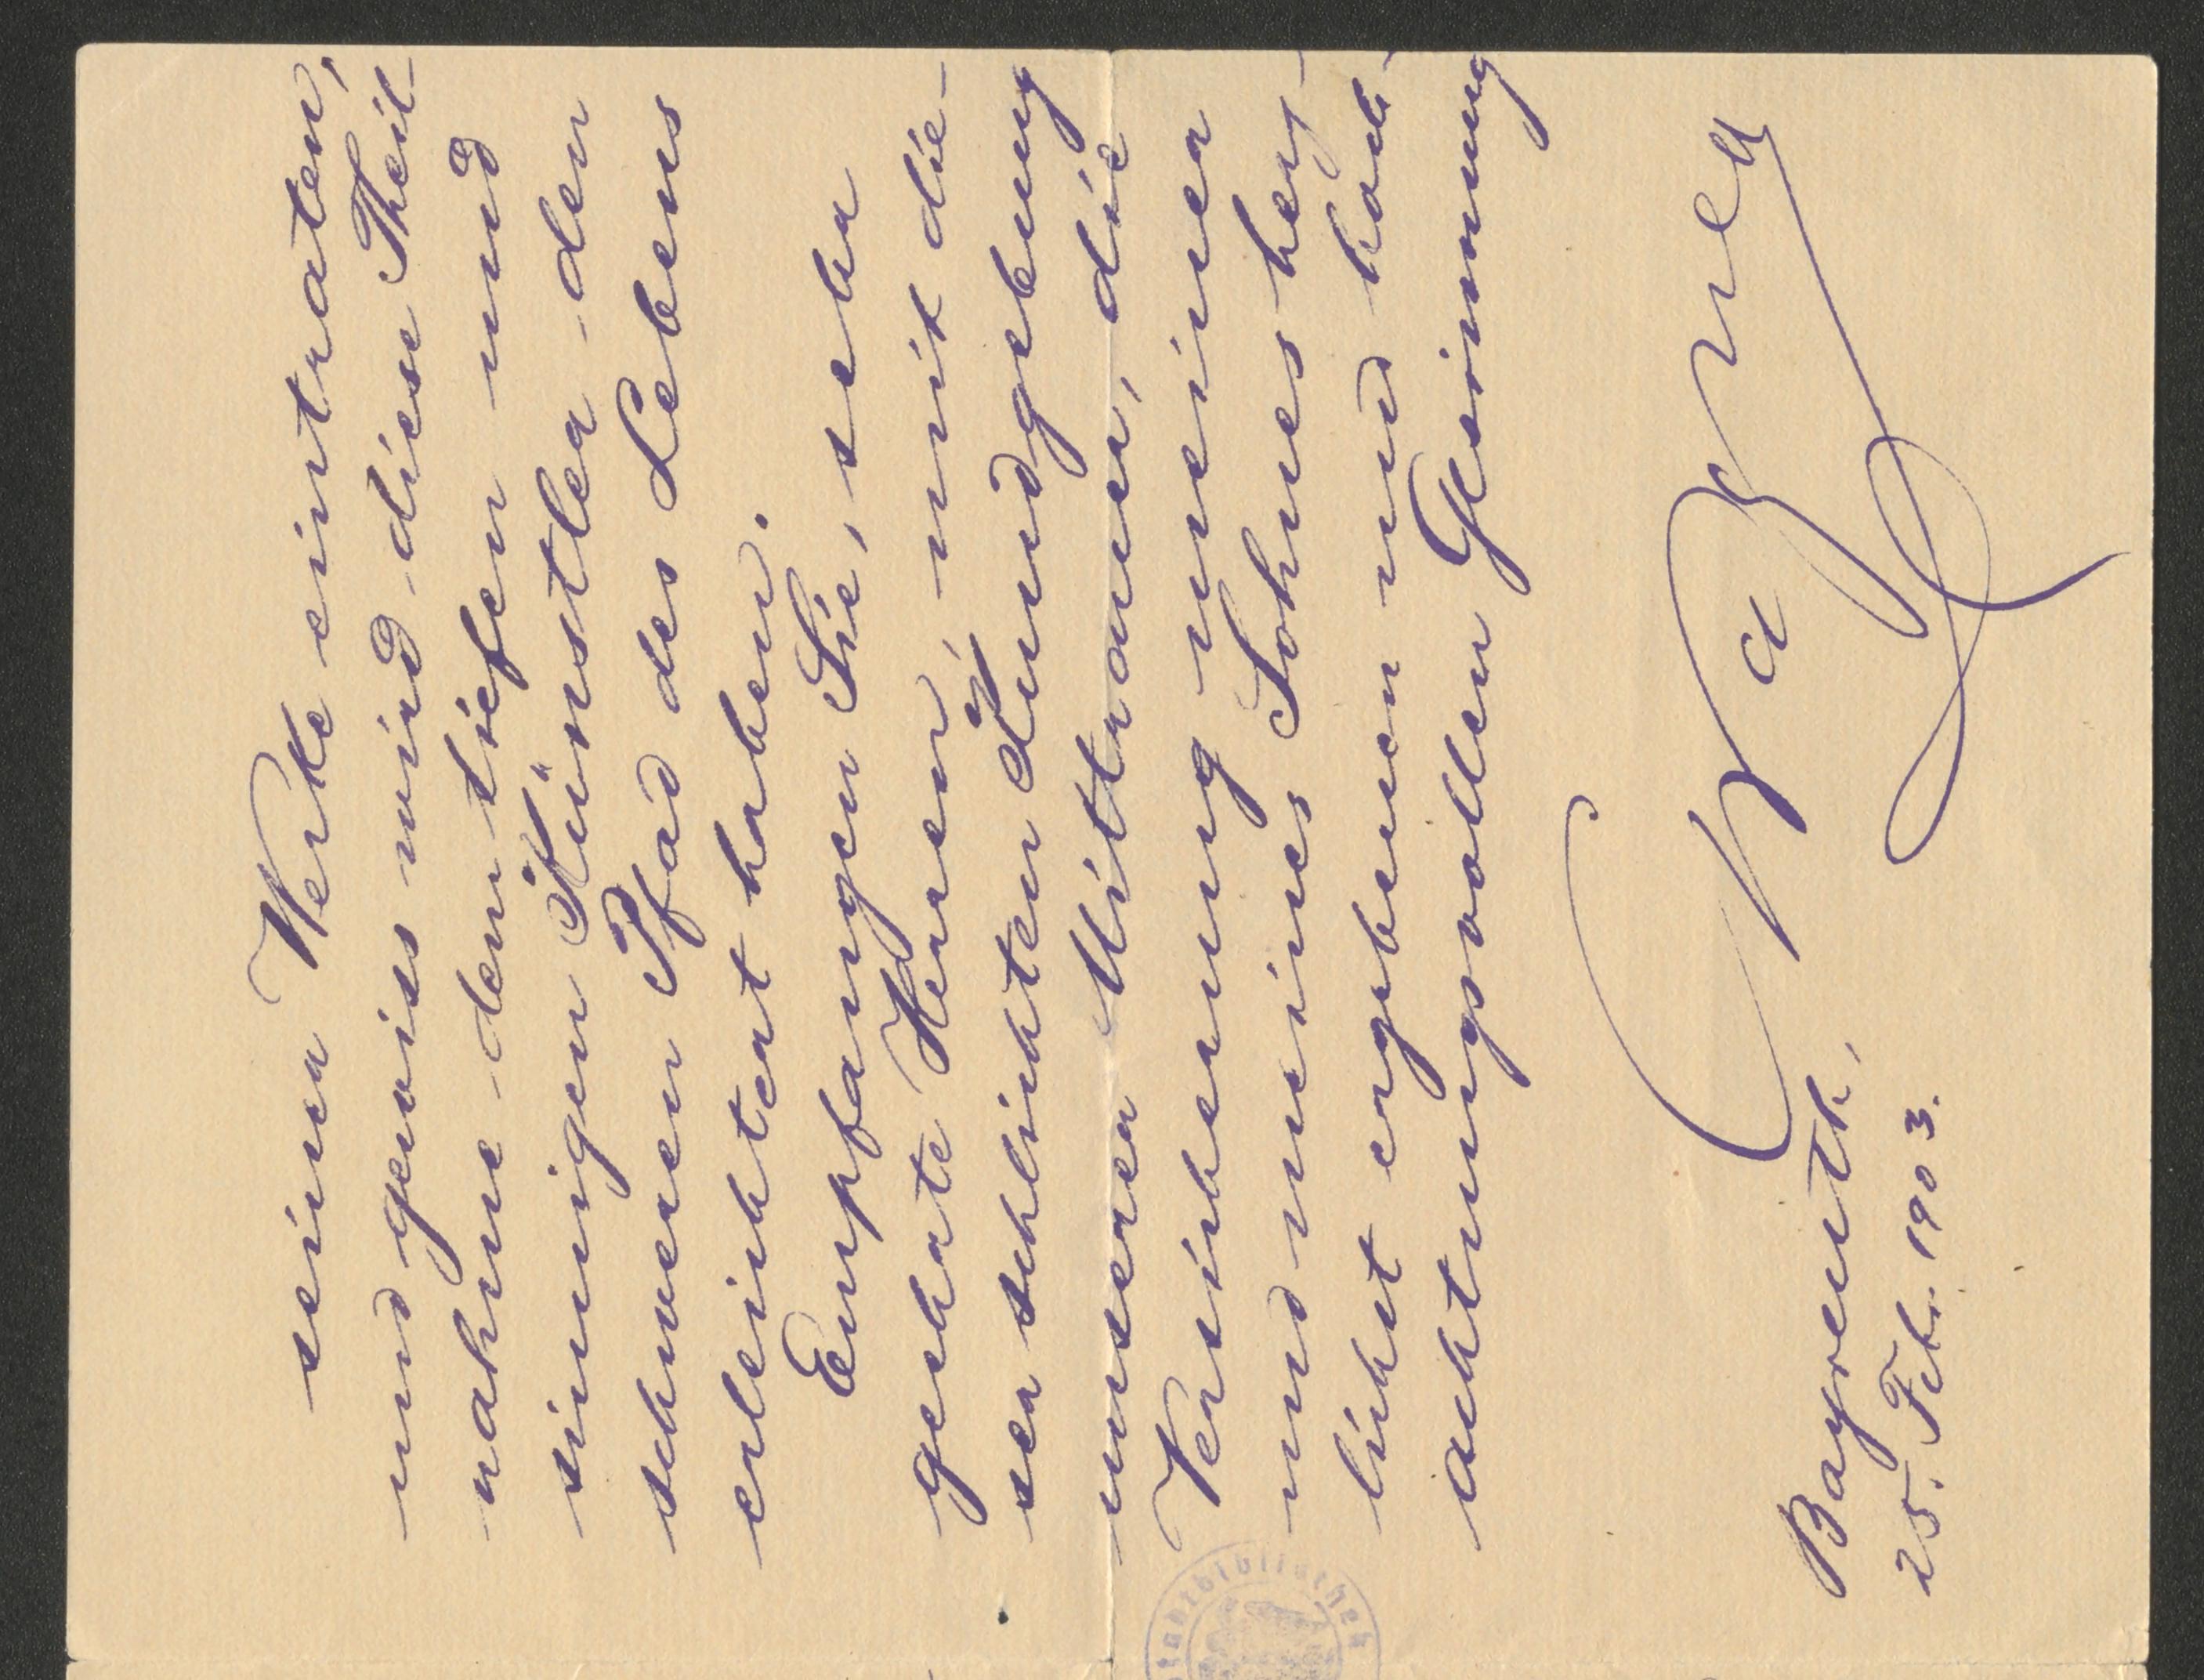 seiner Werke eintraten,
und gewiss wird diese Theil-
nahme dem tiefen und
sinnigen Künstler den
schweren Pfad des Lebens
erleichtert haben.
Empfangen Sie, sehr
geehrte Herren, mit die-
ser schlichten Kundgebung
unserer Mittrauer, die
Versicherung meiner
und meines Sohnes herz-
lichst ergebenen und hoch-
achtungsvollen Gesinnung
C Wagner
Bayreuth,
25. Feb. 1903.
Stadtbibliothek